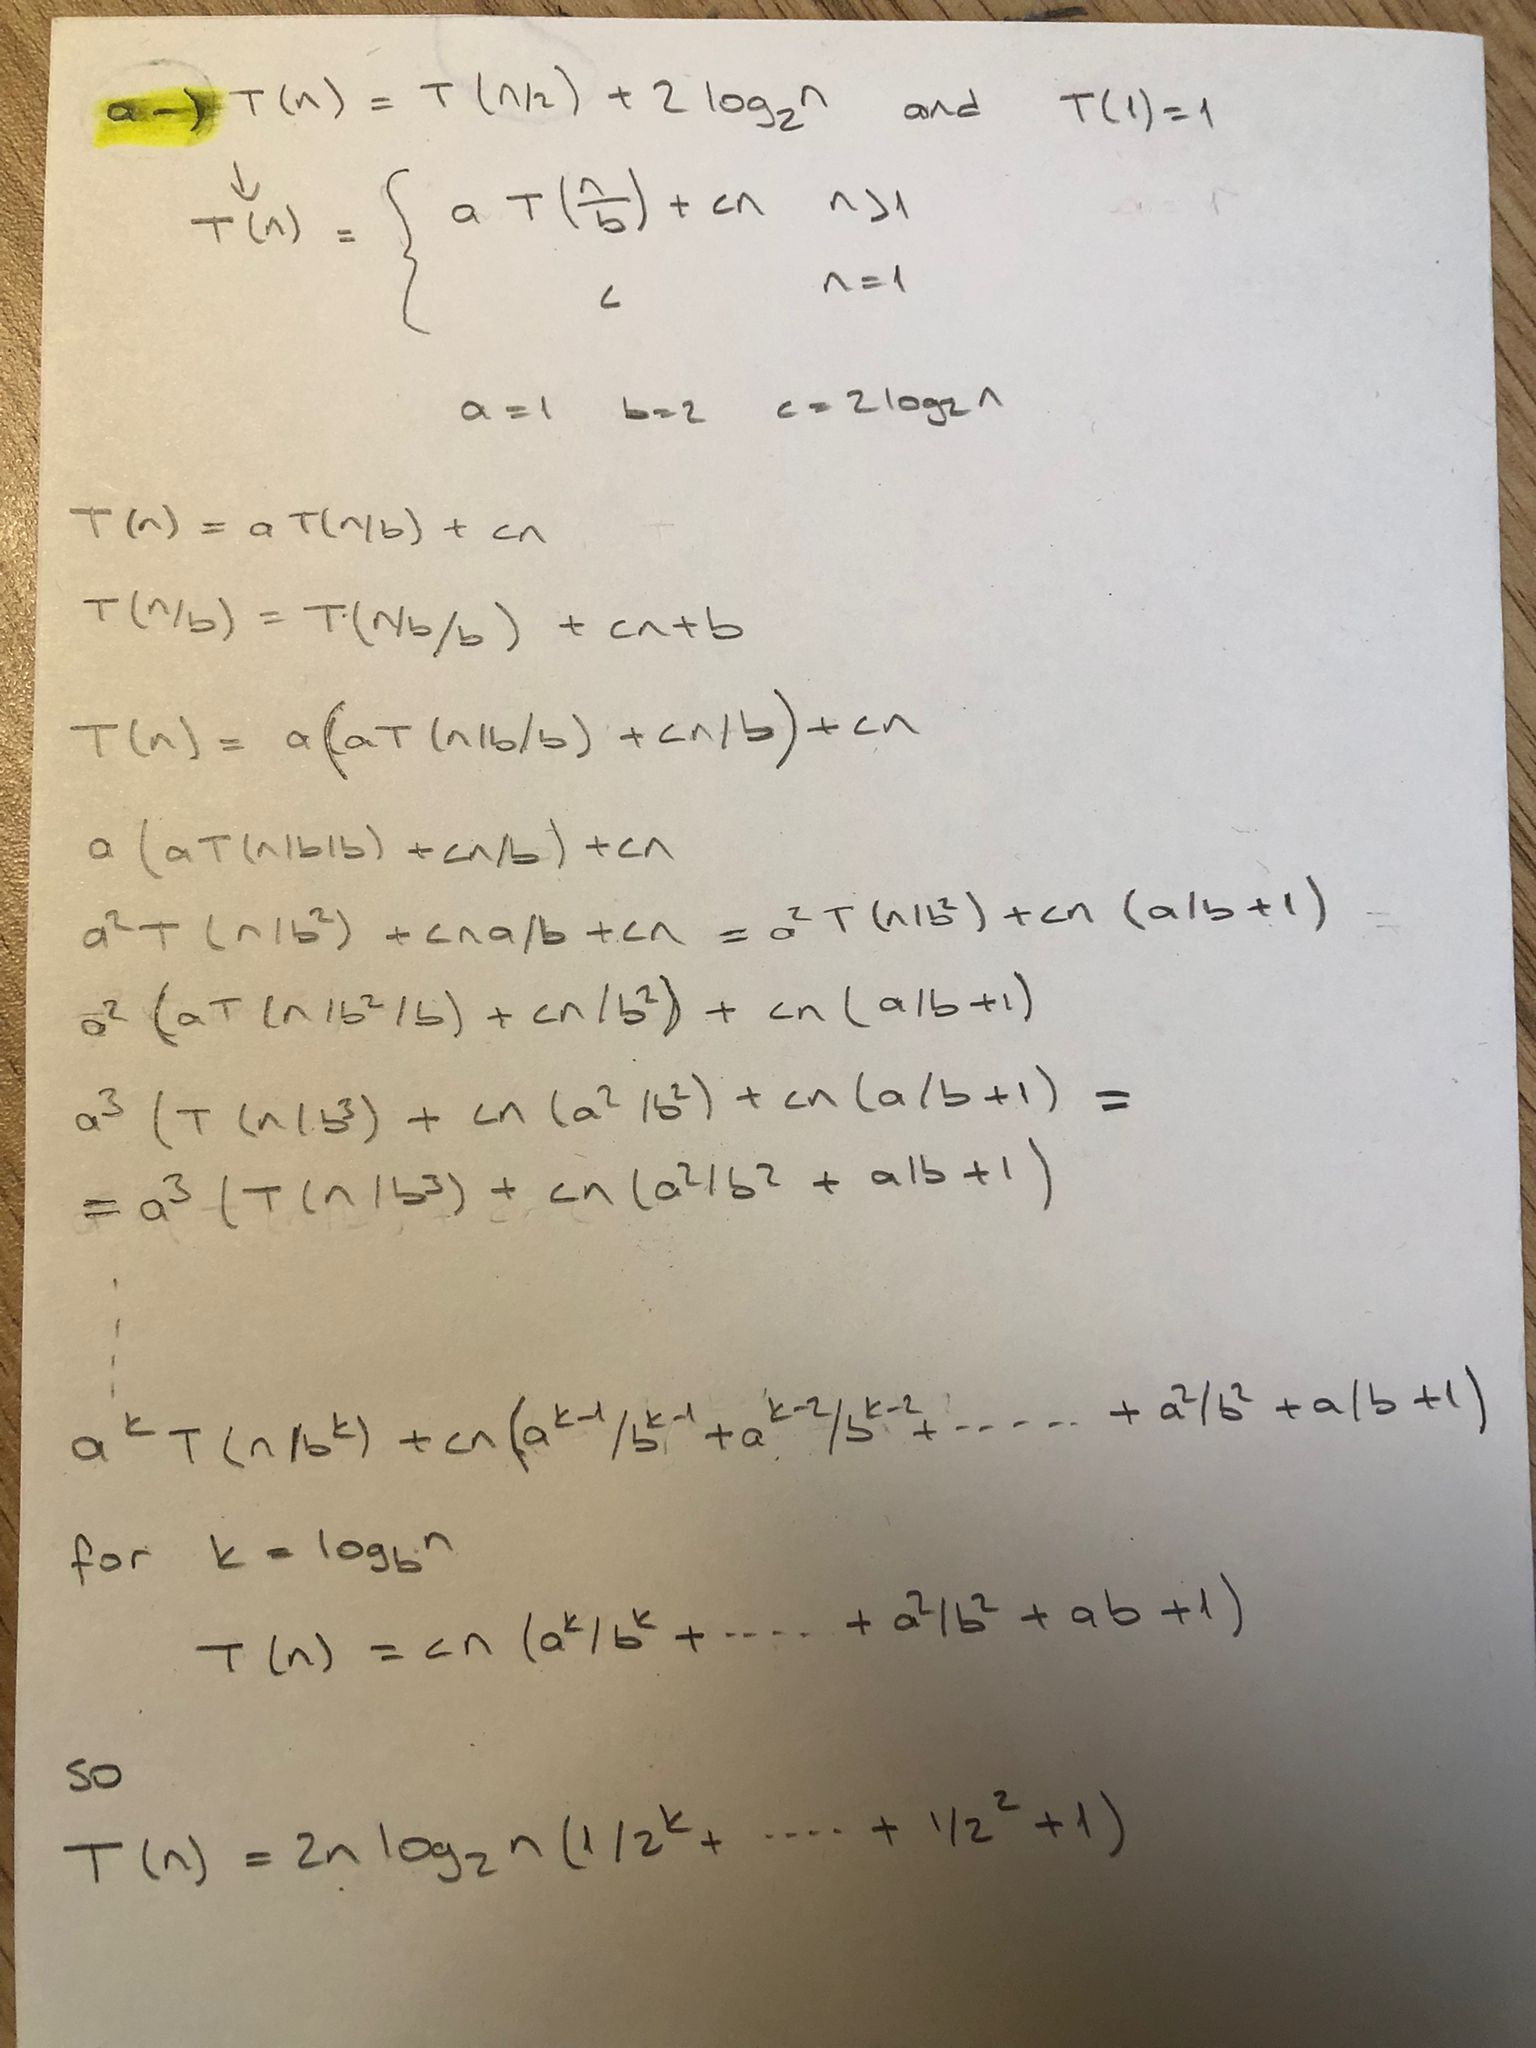 a-) T(n) = T(n/2) + 2 log₂n and T(1)=1
↓
T(n) = { a T(n/b) + cn n>1
c n=1
a=1 b=2 c=2log₂n
T(n) = a T(n/b) + cn
T(n/b) = T(n/b/b) + cn+b
T(n) = a(aT(n/b/b) + cn/b) + cn
a (aT(n/b/b) + cn/b) + cn
a²T(n/b²) + cna/b + cn = a²T(n/b²) + cn (a/b+1) =
a² (aT(n/b²/b) + cn/b²) + cn (a/b+1)
a³ (T(n/b³) + cn (a²/b²) + cn (a/b+1) =
= a³ (T(n/b³) + cn (a²/b² + a/b+1)
a^k T(n/b^k) + cn(a^k-1/b^k-1 + a^k-2/b^k-2 + ...... + a²/b² + a/b+1)
for k = log_b n
T(n) = cn (a^k/b^k + ..... + a²/b² + ab+1)
so
T(n) = 2n log₂n (1/2^k + .... + 1/2² + 1)